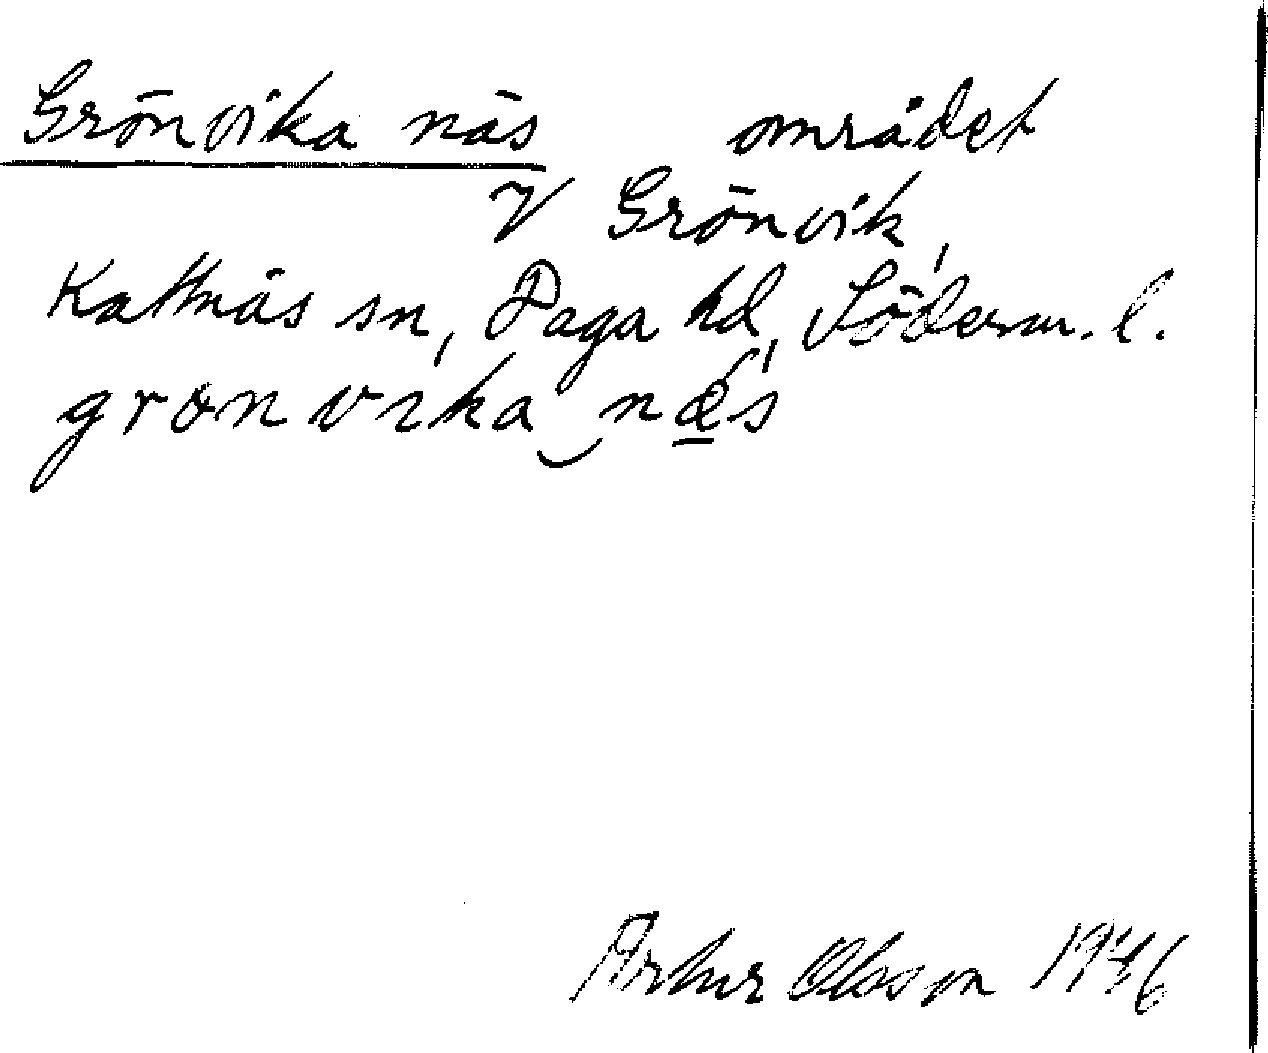 Grönvika näs området
V Grönvik,
Kattnäs sn, Daga hd, Söderm. l.
grönvika‿næ̲´s
Artur Olsson 1946